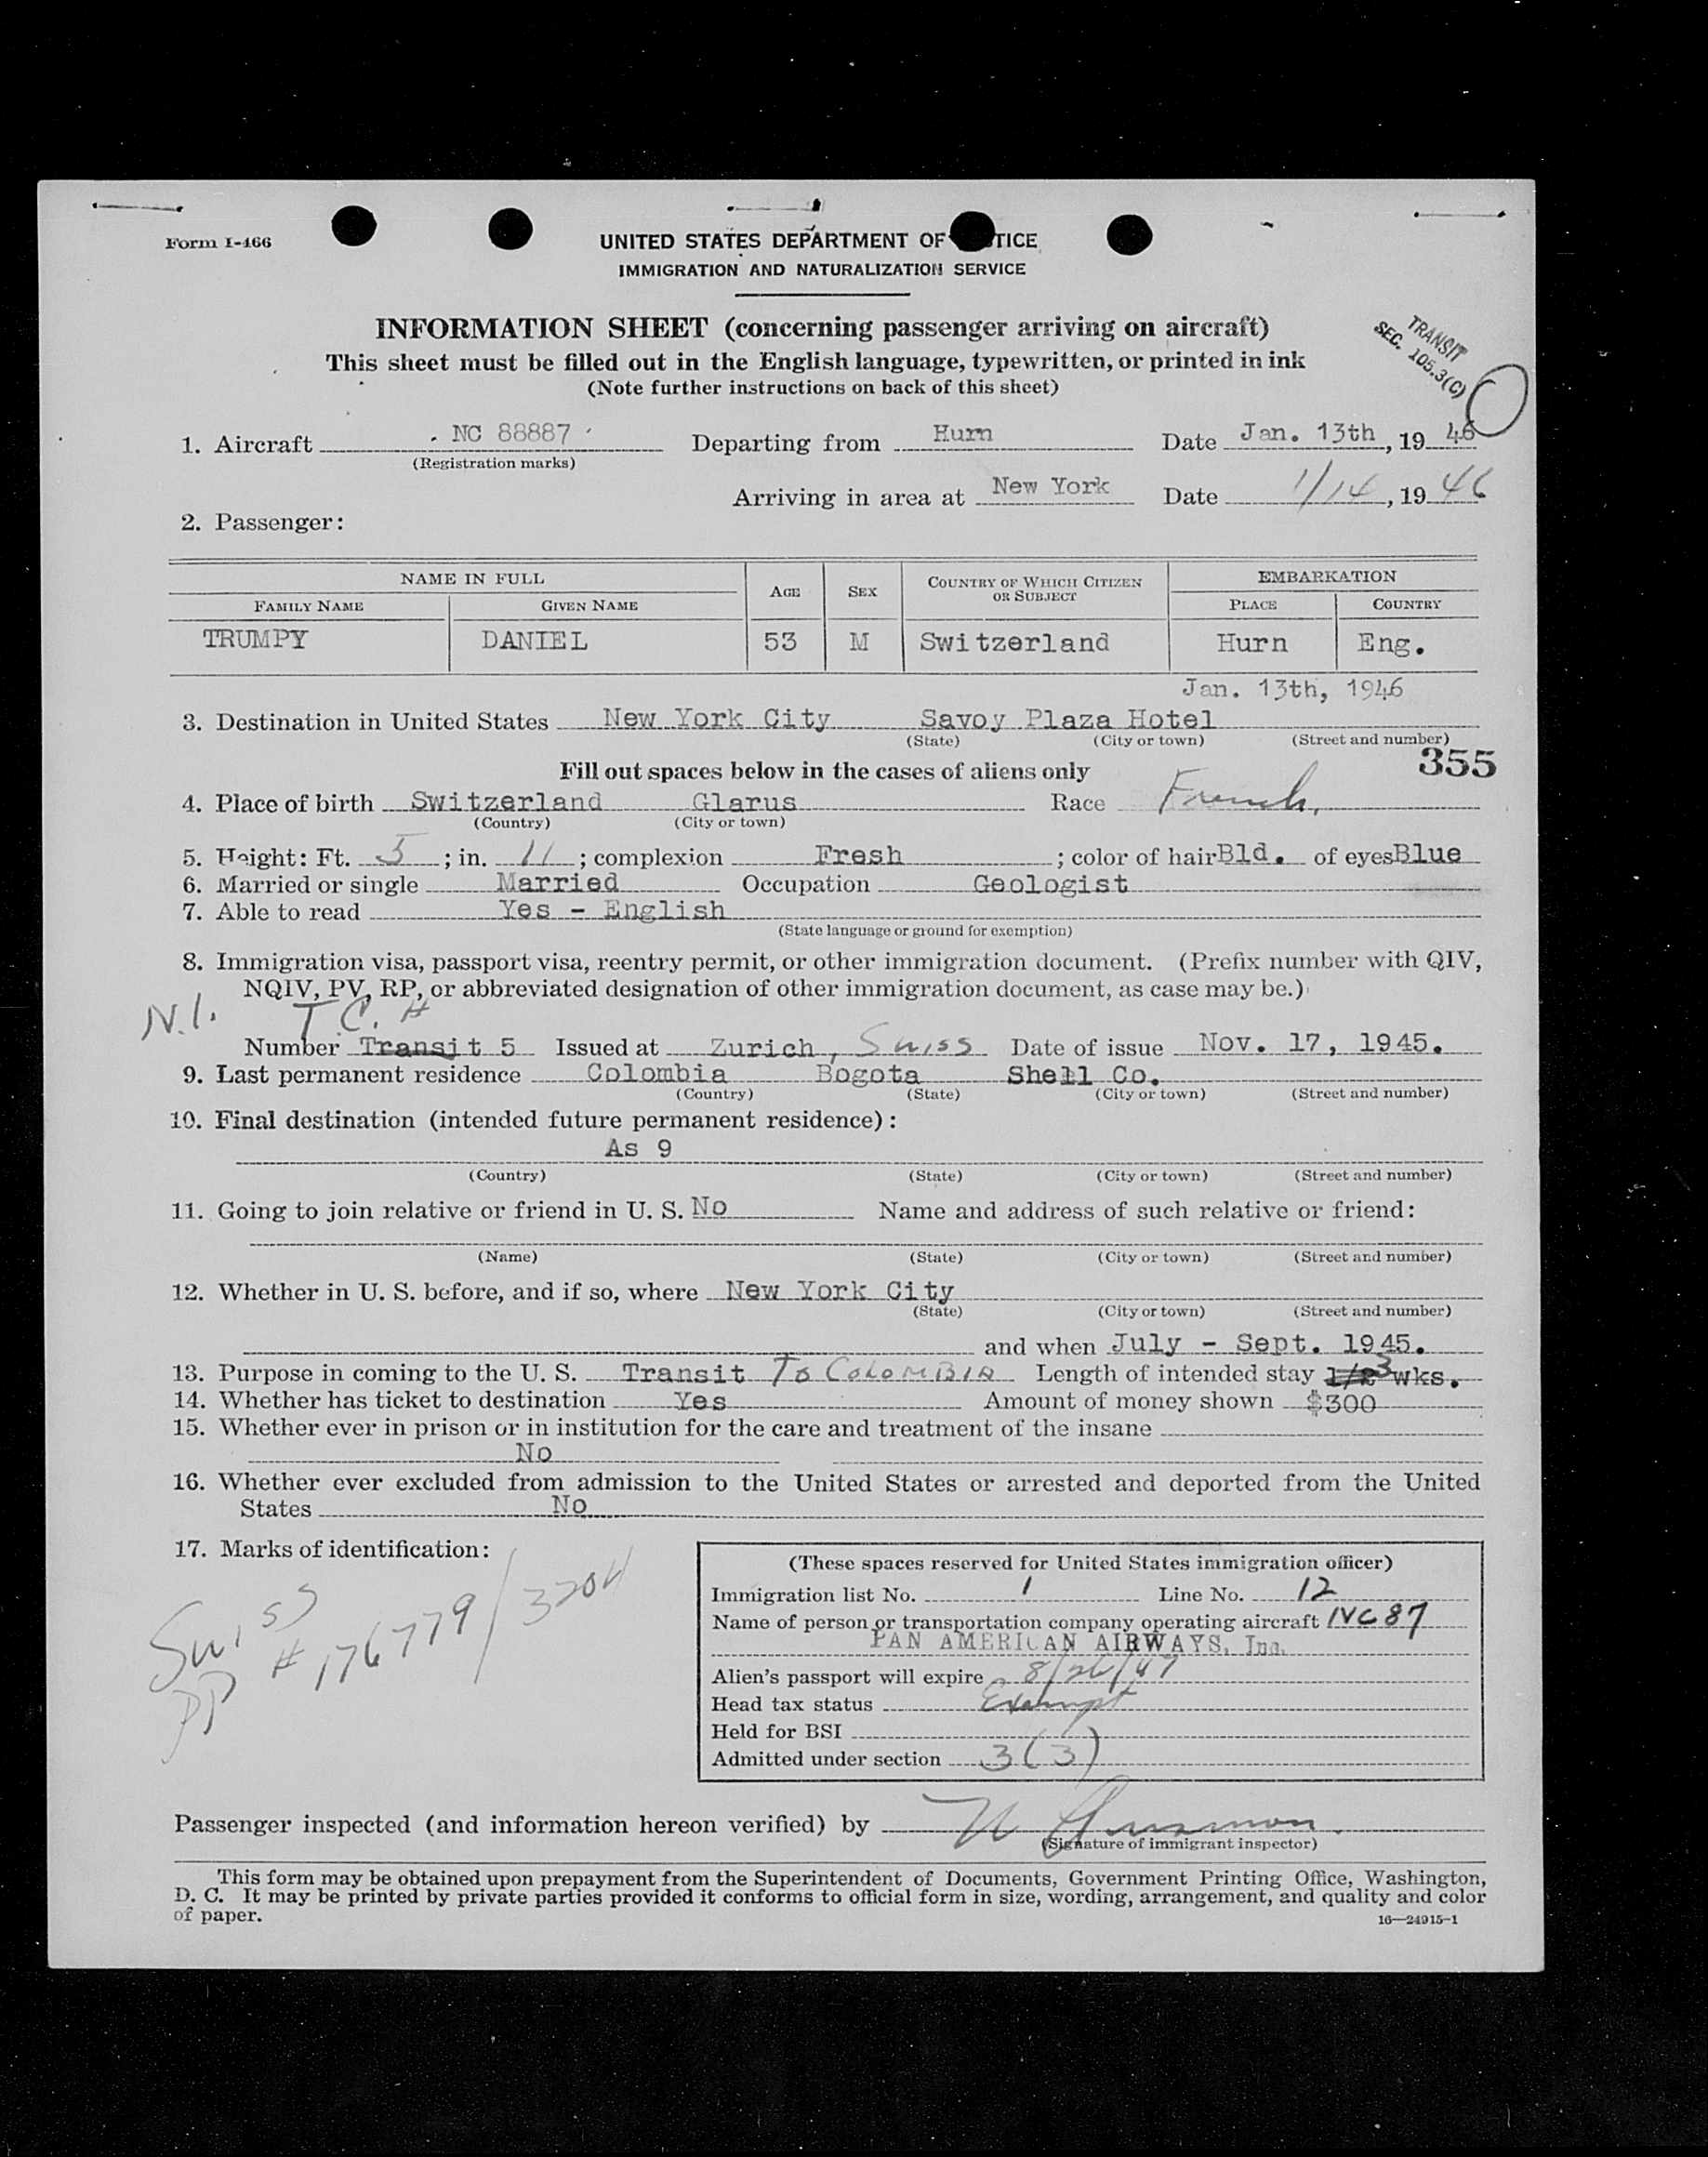 Form I-466
UNITED STATES DEPARTMENT OF TICE
IMMIGRATION AND NATURALIZATION SERVICE
INFORMATION SHEET (concerning passenger arriving on aircraft)
This sheet must be filled out in the English language, typewritten, or printed in ink
(Note further instructions on back of this sheet)
TRANSIT
SEC. 105.3(C)
1. Aircraft NC 88887 Departing from Hurn Date Jan. 13th, 19 46
(Registration marks)
Arriving in area at New York Date 1/14, 19 46
2. Passenger:
NAME IN FULL AGE SEX COUNTRY OF WHICH CITIZEN OR SUBJECT EMBARKATION
FAMILY NAME GIVEN NAME PLACE COUNTRY
TRUMPY DANIEL 53 M Switzerland Hurn Eng.
Jan. 13th, 1946
3. Destination in United States New York City Savoy Plaza Hotel
(State) (City or town) (Street and number)
355
Fill out spaces below in the cases of aliens only
4. Place of birth Switzerland Glarus Race French,
(Country) (City or town)
5. Height: Ft. 5; in. 11; complexion Fresh; color of hair Bld. of eyes Blue
6. Married or single Married Occupation Geologist
7. Able to read Yes - English
(State language or ground for exemption)
8. Immigration visa, passport visa, reentry permit, or other immigration document. (Prefix number with QIV,
NQIV, PV, RP, or abbreviated designation of other immigration document, as case may be.)
N.I. T.C. #
Number Transit 5 Issued at Zurich, Swiss Date of issue Nov. 17, 1945.
9. Last permanent residence Colombia Bogota Shell Co.
(Country) (State) (City or town) (Street and number)
10. Final destination (intended future permanent residence):
As 9
(Country) (State) (City or town) (Street and number)
11. Going to join relative or friend in U. S. No Name and address of such relative or friend:
(Name) (State) (City or town) (Street and number)
12. Whether in U. S. before, and if so, where New York City
(State) (City or town) (Street and number)
and when July - Sept. 1945.
13. Purpose in coming to the U. S. Transit To COLOMBIA Length of intended stay 1/2 3 wks.
14. Whether has ticket to destination Yes Amount of money shown $300
15. Whether ever in prison or in institution for the care and treatment of the insane
No
16. Whether ever excluded from admission to the United States or arrested and deported from the United
States No
17. Marks of identification:
Swiss
PP # 176779/3204
(These spaces reserved for United States immigration officer)
Immigration list No. 1 Line No. 12
Name of person or transportation company operating aircraft NC 87
PAN AMERICAN AIRWAYS, Inc.
Alien's passport will expire 8/26/47
Head tax status Exempt
Held for BSI
Admitted under section 3(3)
Passenger inspected (and information hereon verified) by
(Signature of immigrant inspector)
This form may be obtained upon prepayment from the Superintendent of Documents, Government Printing Office, Washington,
D. C. It may be printed by private parties provided it conforms to official form in size, wording, arrangement, and quality and color
of paper.
16—24915-1